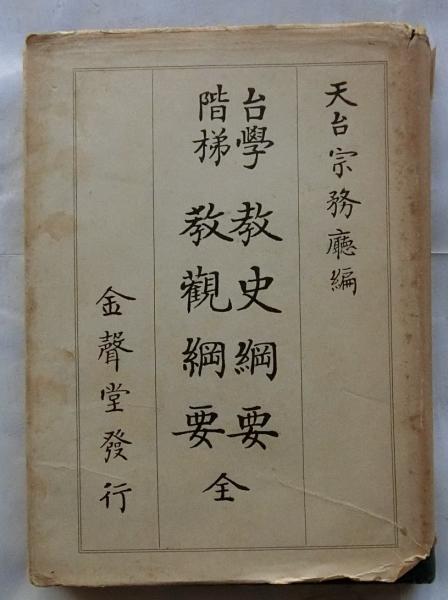 天台宗務廳編
台學階梯
教史綱要
教觀綱要
全
金聲堂發行